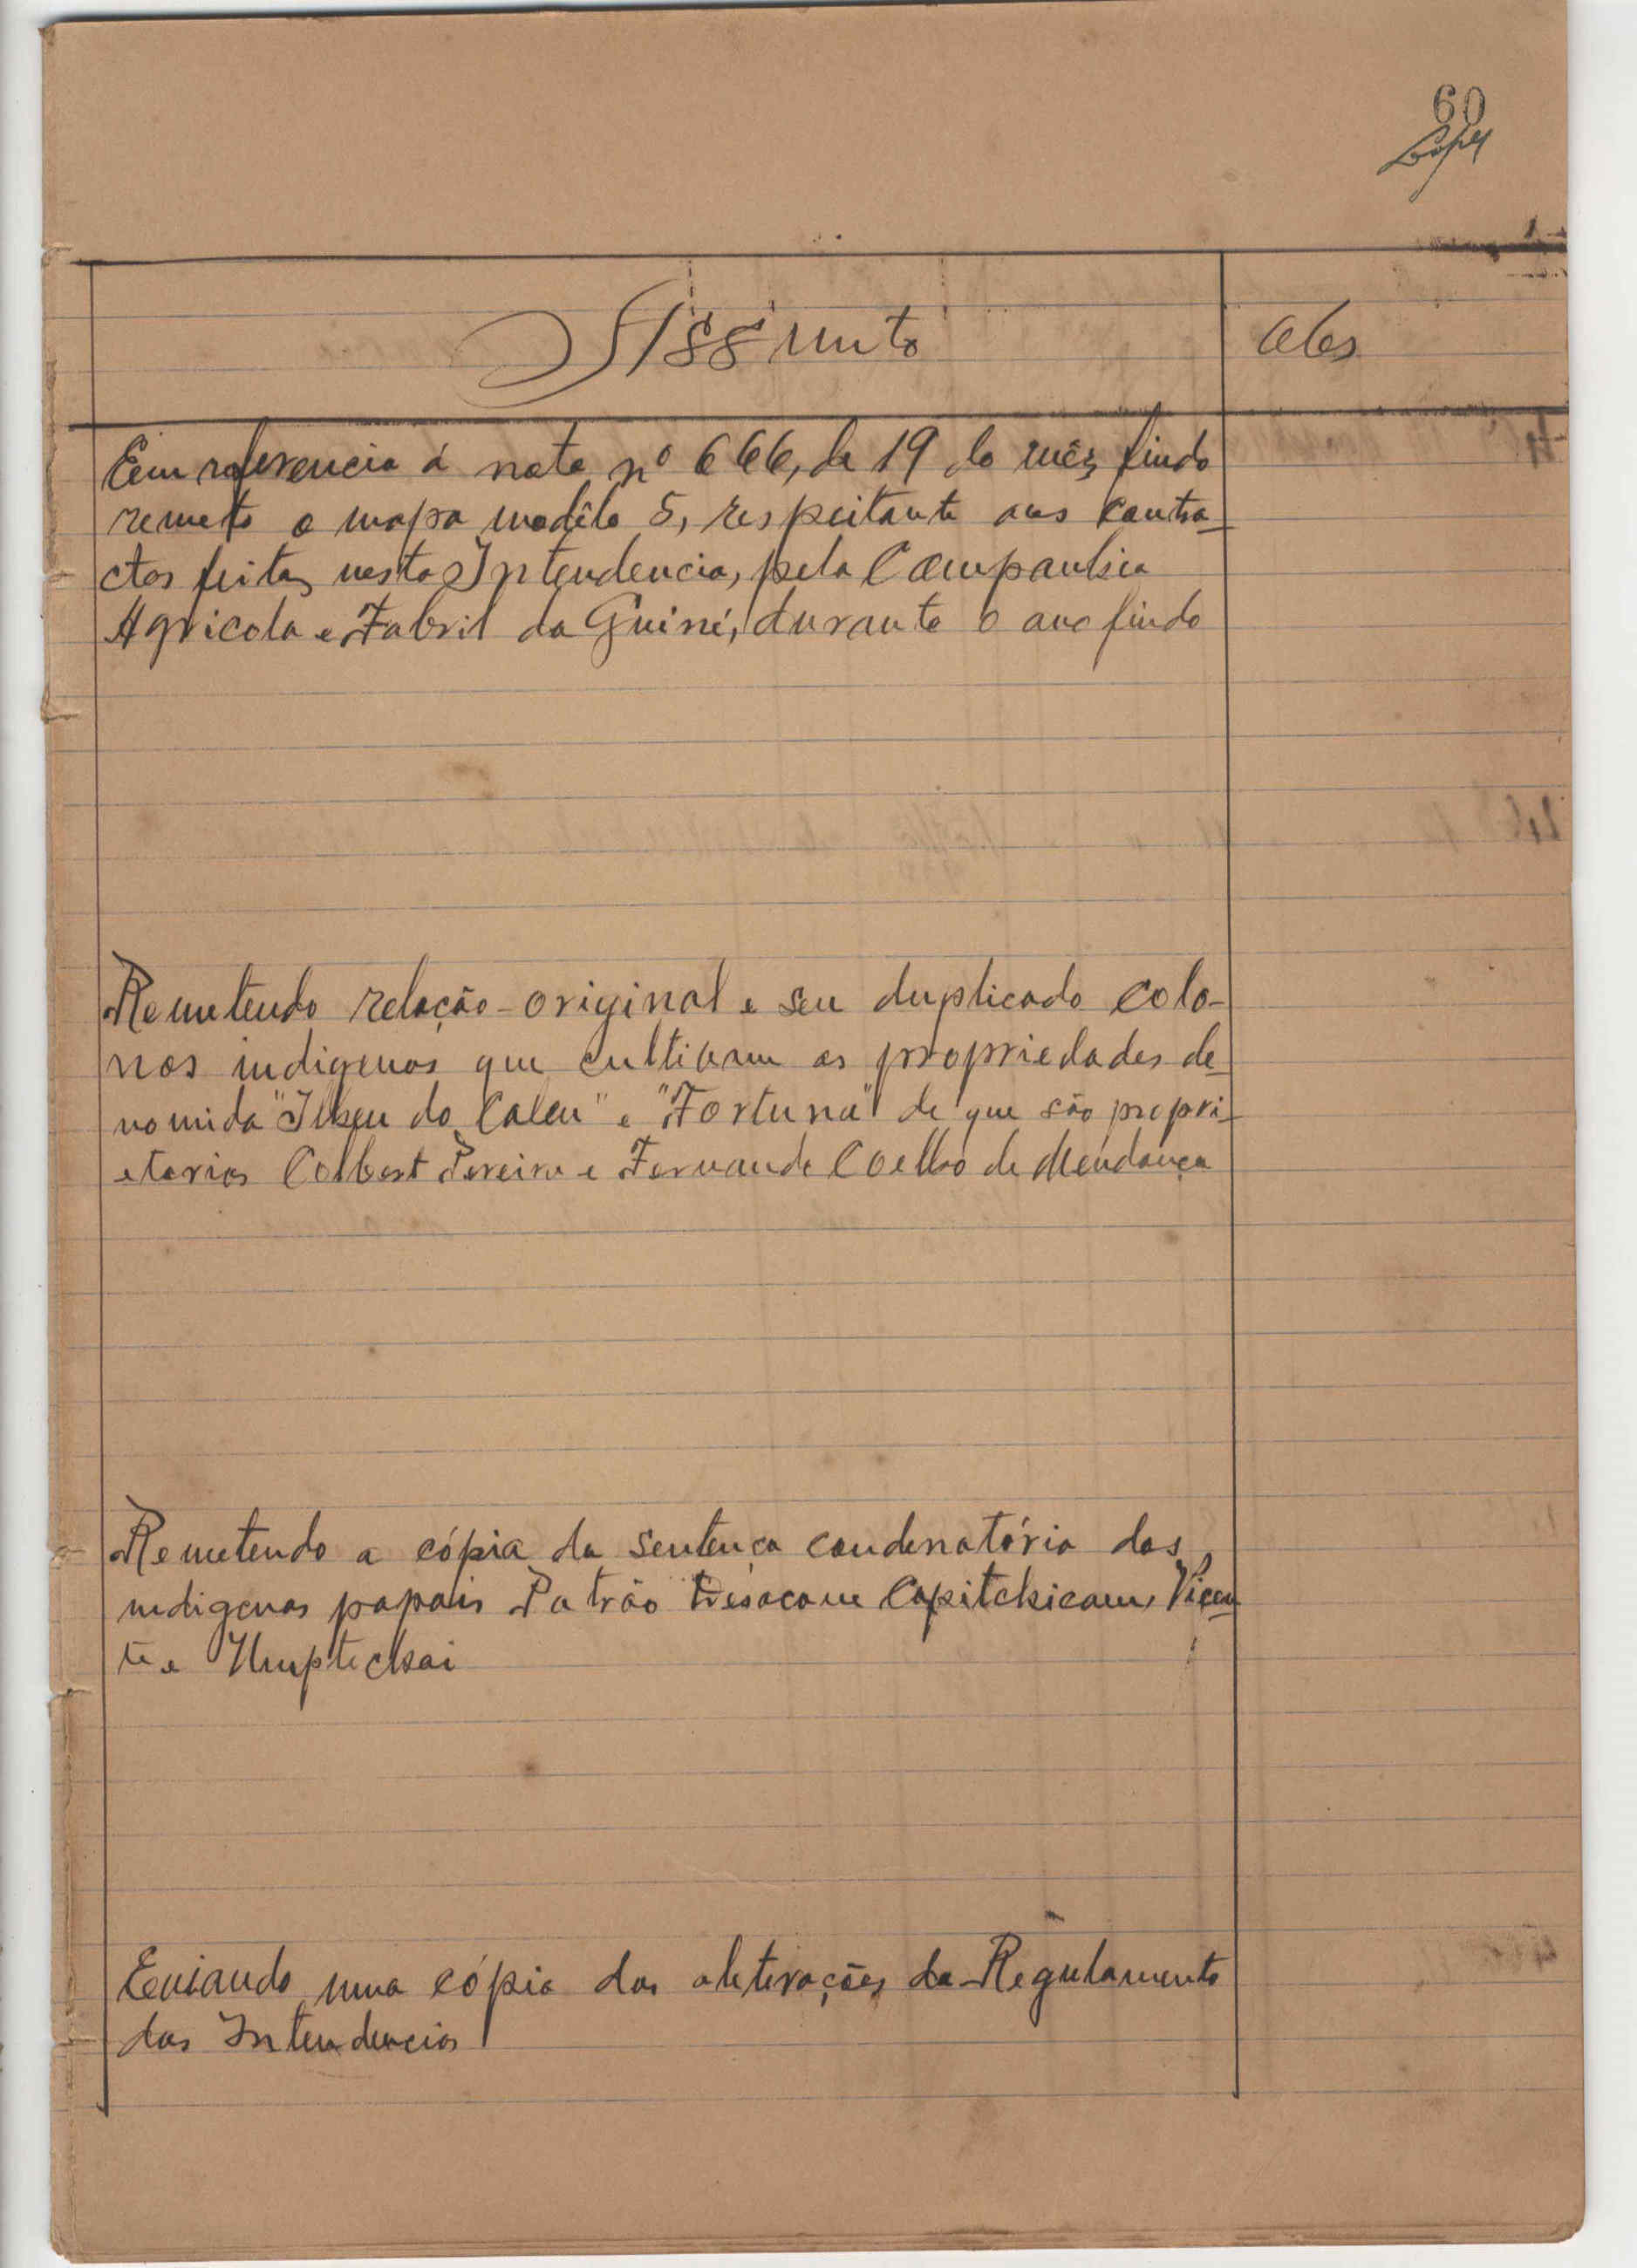 60
Lopes
Assunto
Obs
Em referencia á nota nº 666, de 19 do mês findo
remeto o mapa modêlo 5, respeitante aos contra-
ctos feitos nesta Intendencia, pela Companhia
Agricola e Fabril da Guiné, durante o ano findo
Remetendo relação-original e seu duplicado colo-
nos indigenas que cultivam as propriedades de-
nomida "Ilheu do Caleu" e "Fortuna" de que são propri-
etarios Colbert Pereira e Fernando Coelho de Mendonça
Remetendo a cópia da sentença condenatória dos
indigenas papais Patrão Capitchicam, Vicen
te e Umptchai
Enviando uma cópia das alterações do Regulamento
das Intendencias